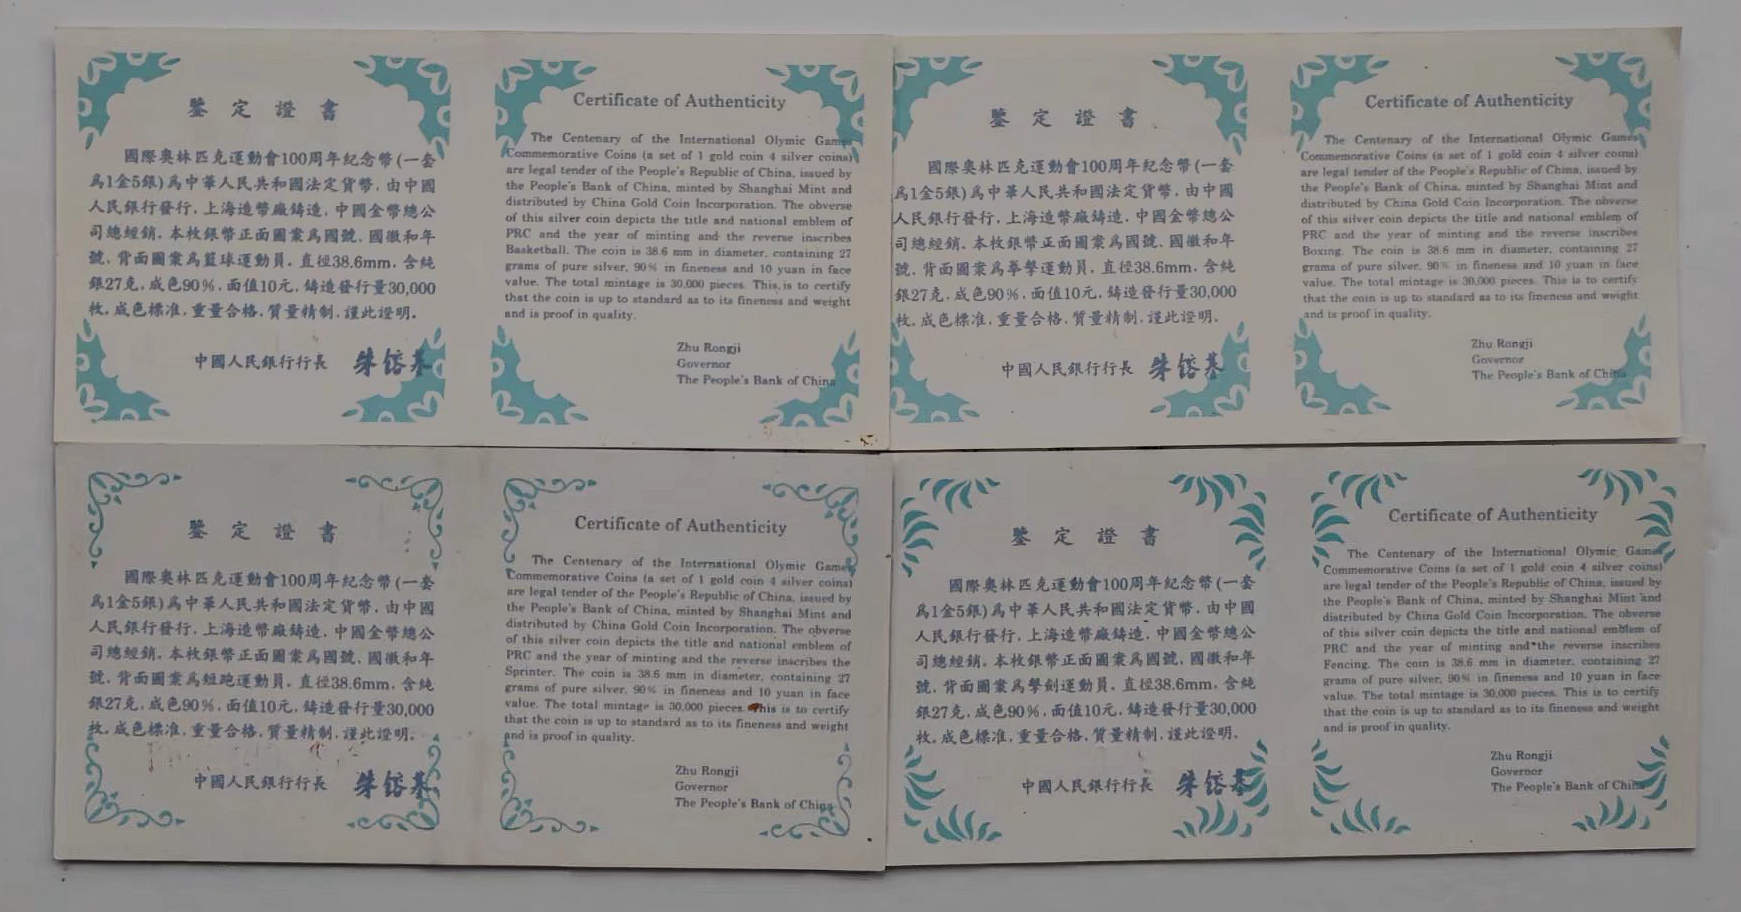 鑒定證書
國際奧林匹克運動會100周年紀念幣(一套
爲1金5銀)爲中華人民共和國法定貨幣,由中國
人民銀行發行,上海造幣廠鑄造,中國金幣總公
司總經銷。本枚銀幣正面圖案爲國號、國徽和年
號,背面圖案爲籃球運動員。直徑38.6mm,含純
銀27克,成色90%,面值10元,鑄造發行量30,000
枚。成色標准,重量合格,質量精制,謹此證明。
中國人民銀行行長 朱鎔基
Certificate of Authenticity
The Centenary of the International Olymic Games
Commemorative Coins (a set of 1 gold coin 4 silver coins)
are legal tender of the People's Republic of China, issued by
the People's Bank of China, minted by Shanghai Mint and
distributed by China Gold Coin Incorporation. The obverse
of this silver coin depicts the title and national emblem of
PRC and the year of minting and the reverse inscribes
Basketball. The coin is 38.6 mm in diameter, containing 27
grams of pure silver, 90% in fineness and 10 yuan in face
value. The total mintage is 30,000 pieces. This is to certify
that the coin is up to standard as to its fineness and weight
and is proof in quality.
Zhu Rongji
Governor
The People's Bank of China
鑒定證書
國際奧林匹克運動會100周年紀念幣(一套
爲1金5銀)爲中華人民共和國法定貨幣,由中國
人民銀行發行,上海造幣廠鑄造,中國金幣總公
司總經銷。本枚銀幣正面圖案爲國號、國徽和年
號,背面圖案爲拳擊運動員。直徑38.6mm,含純
銀27克,成色90%,面值10元,鑄造發行量30,000
枚。成色標准,重量合格,質量精制,謹此證明。
中國人民銀行行長 朱鎔基
Certificate of Authenticity
The Centenary of the International Olymic Games
Commemorative Coins (a set of 1 gold coin 4 silver coins)
are legal tender of the People's Republic of China, issued by
the People's Bank of China, minted by Shanghai Mint and
distributed by China Gold Coin Incorporation. The obverse
of this silver coin depicts the title and national emblem of
PRC and the year of minting and the reverse inscribes
Boxing. The coin is 38.6 mm in diameter, containing 27
grams of pure silver, 90% in fineness and 10 yuan in face
value. The total mintage is 30,000 pieces. This is to certify
that the coin is up to standard as to its fineness and weight
and is proof in quality.
Zhu Rongji
Governor
The People's Bank of China
鑒定證書
國際奧林匹克運動會100周年紀念幣(一套
爲1金5銀)爲中華人民共和國法定貨幣,由中國
人民銀行發行,上海造幣廠鑄造,中國金幣總公
司總經銷。本枚銀幣正面圖案爲國號、國徽和年
號,背面圖案爲短跑運動員。直徑38.6mm,含純
銀27克,成色90%,面值10元,鑄造發行量30,000
枚。成色標准,重量合格,質量精制,謹此證明。
中國人民銀行行長 朱鎔基
Certificate of Authenticity
The Centenary of the International Olymic Games
Commemorative Coins (a set of 1 gold coin 4 silver coins)
are legal tender of the People's Republic of China, issued by
the People's Bank of China, minted by Shanghai Mint and
distributed by China Gold Coin Incorporation. The obverse
of this silver coin depicts the title and national emblem of
PRC and the year of minting and the reverse inscribes the
Sprinter. The coin is 38.6 mm in diameter, containing 27
grams of pure silver, 90% in fineness and 10 yuan in face
value. The total mintage is 30,000 pieces. This is to certify
that the coin is up to standard as to its fineness and weight
and is proof in quality.
Zhu Rongji
Governor
The People's Bank of China
鑒定證書
國際奧林匹克運動會100周年紀念幣(一套
爲1金5銀)爲中華人民共和國法定貨幣,由中國
人民銀行發行,上海造幣廠鑄造,中國金幣總公
司總經銷。本枚銀幣正面圖案爲國號、國徽和年
號,背面圖案爲擊劍運動員。直徑38.6mm,含純
銀27克,成色90%,面值10元,鑄造發行量30,000
枚。成色標准,重量合格,質量精制,謹此證明。
中國人民銀行行長 朱鎔基
Certificate of Authenticity
The Centenary of the International Olymic Games
Commemorative Coins (a set of 1 gold coin 4 silver coins)
are legal tender of the People's Republic of China, issued by
the People's Bank of China, minted by Shanghai Mint and
distributed by China Gold Coin Incorporation. The obverse
of this silver coin depicts the title and national emblem of
PRC and the year of minting and the reverse inscribes
Fencing. The coin is 38.6 mm in diameter, containing 27
grams of pure silver, 90% in fineness and 10 yuan in face
value. The total mintage is 30,000 pieces. This is to certify
that the coin is up to standard as to its fineness and weight
and is proof in quality.
Zhu Rongji
Governor
The People's Bank of China